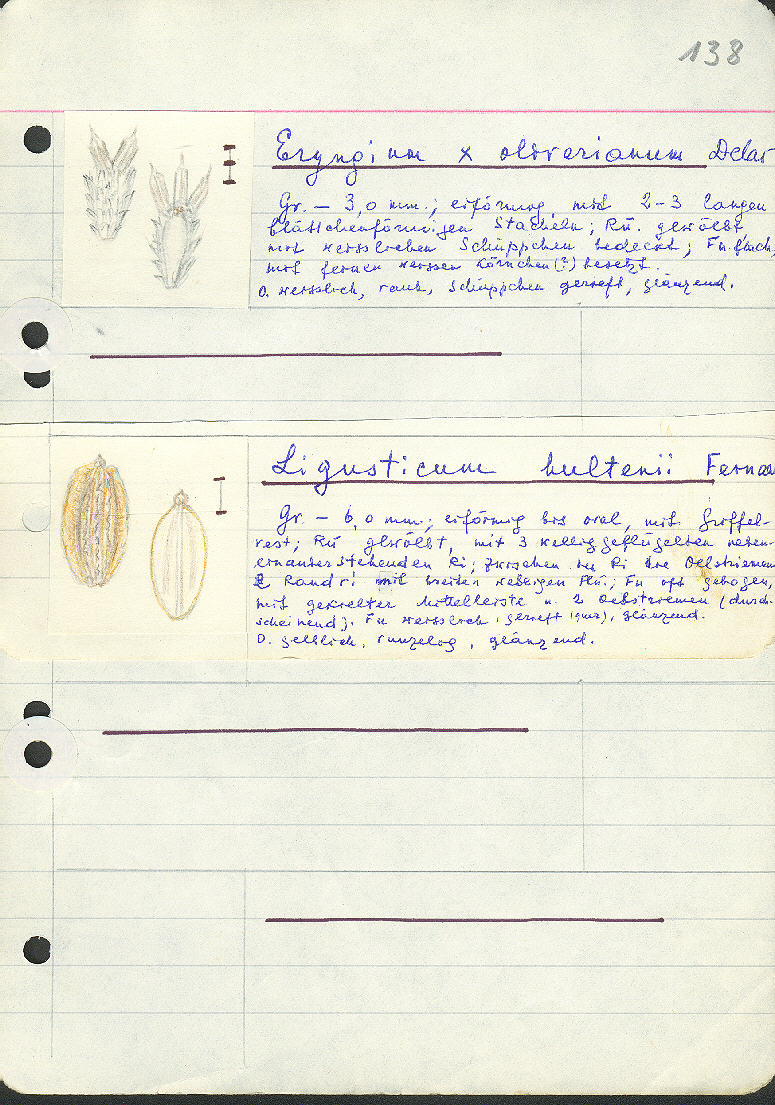 138
Eryngium x oliverianum Delar
Gr. – 3,0 mm.; eiförmig, mit 2–3 langen
blättchenförmigen Stacheln; Rü. gewölbt,
mit weisslichen Schüppchen bedeckt; Fu flach,
mit feinen weissen Körnchen (?) besetzt.
O. weisslich, rauh, Schüppchen gereift, glänzend.
Ligusticum hultenii Fernal
Gr. – 6,0 mm.; eiförmig bis oval, mit Griffel-
rest; Rü gewölbt, mit 3 wellig geflügelten neben-
einanderstehenden Ri; zwischen den Ri die Oelstriemen
2 Randri mit breiten welligen Flü.; Fu oft gebogen,
mit gekielter Mittelleiste u. 2 Oelstriemen (durch-
scheinend). Fu weisslich, gereift (quer), glänzend.
O. gelblich, runzelig, glänzend.